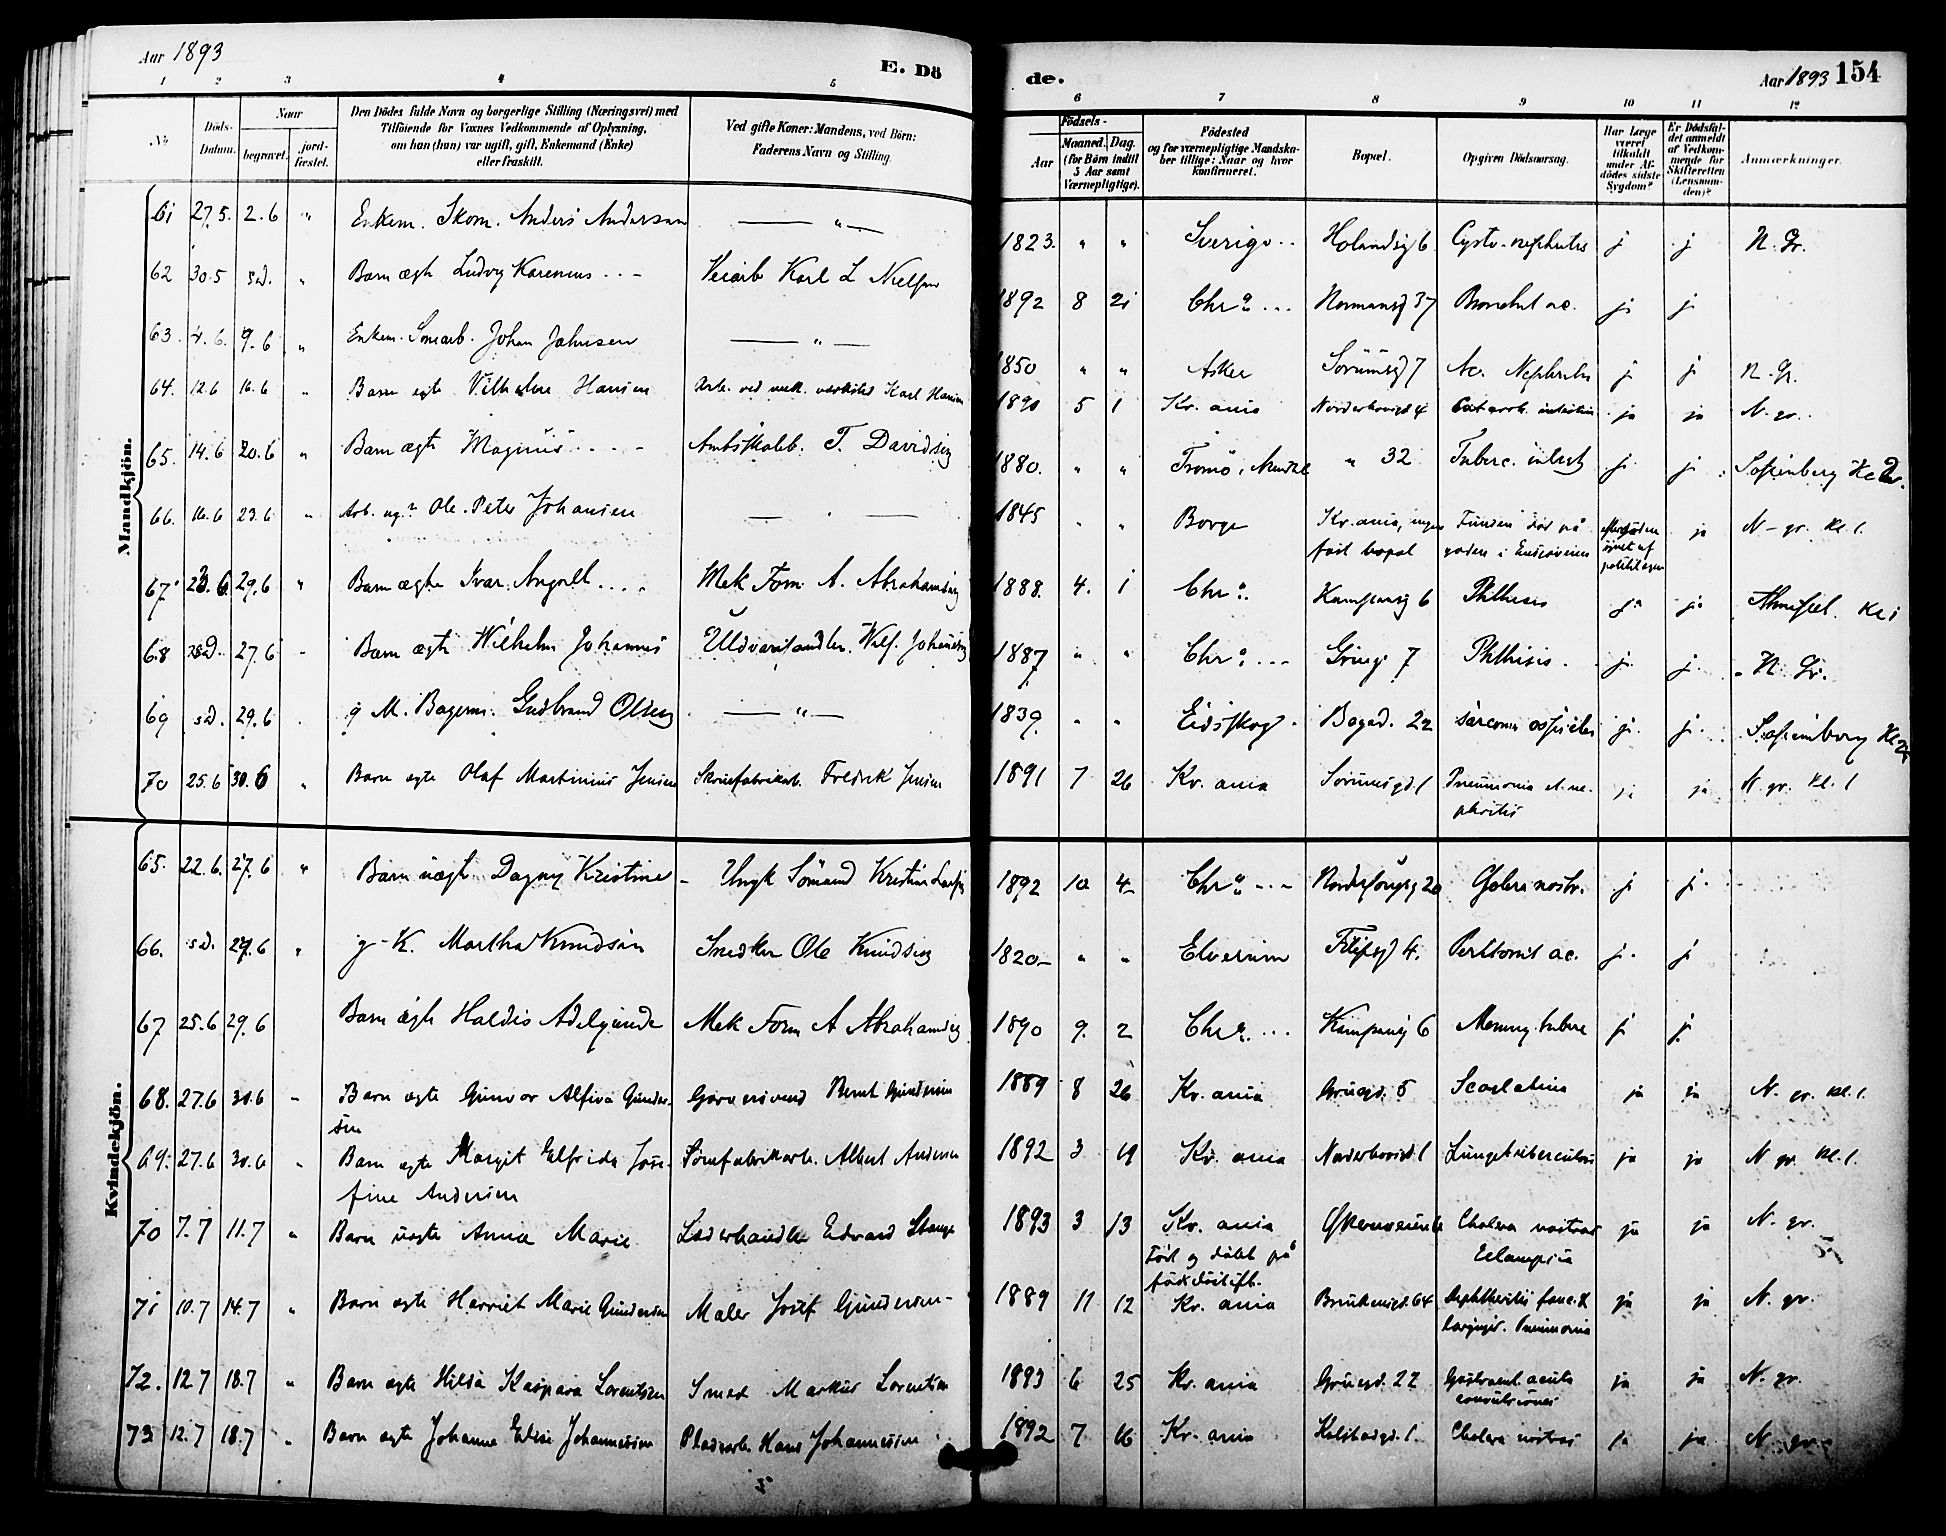 Aar 1893
E. Dö
de.
Aar 1893 154
1 2 3 4 5 6 7 8 9 10 11 12
No
Döds-Datum.
Naar
begravet.
jord-fæstet.
Den Dödes fulde Navn og borgerlige Stilling (Næringsvei) med
Tilföiende for Voxnes Vedkommende af Oplysning,
om han (hun) var ugift, gift, Enkemand (Enke)
eller fraskilt.
Ved gifte Koner: Mandens, ved Börn:
Faderens Navn og Stilling.
Födsels-
Aar
Maaned. Dag.
(for Börn indtil
5 Aar samt
Værnepligtige).
Födested
og for værnepligtige Mandska-
ber tillige: Naar og hvor
konfirmeret.
Bopæl.
Opgiven Dödsaarsag.
Har Læge
været
tilkaldt
under Af-
dödes sidste
Sygdom?
Er Dödsfal-
det anmeldt
af Vedkom-
mende for
Skifteretten
(Lensman-
den)?
Anmærkninger.
Mandkjön.
61 27.5. 2.6 " Enkem. Skom. Anders Andersen — " — 1823. " " Sverige Holandsg 6 Cysto-nephritis j j N. Gr.
62 30.5 s.d. " Barn ægte Ludvig Karenius Veiarb Karl L Nielsen 1892 8 21 Chra Normansg 37 Bronchit ac. j j
63. 4.6. 9.6 " Enkem. Johan Johnsen — " — 1850 " " Asker Sörumsg 7 Ac. Nephritis j j N. Gr.
64. 12.6 16.6 " Barn ægte Vilhelm Hansen Arb. ved mek. værksted Karl Hansen 1890 5 1 Kr. ania Norderhovgd 4 ja ja N. gr.
65. 14.6 20.6 " Barn ægte Magnus T. Davidsen 1880. " " Tromö, Arendal " 32 Tuberc. j j Sofienberg
66. 16.6 23.6 " Arb. ug. Ole Peter Johansen — " — 1845 " " Borge Kr. ania, ingen
fast bopæl Funden död på
gaden i ja N-gr. kl. 1.
67 23.6 29.6 " Barn ægte Ivar Angell Mek Form. A. Abrahamsen 1888. 4. 1 Chra. Kampensg 6 Phthisis ja ja kl 1
68 s.d. 27.6 " Barn ægte Wilhelm Johannes Uldvarehandler. Johansen 1887 " " Chra Grüneg 7 Phthisis j. j. N. Gr.
69 s.d. 29.6 g M. Gudbrand Olsen — " — 1839. " " Eidskog Bagerd. 22 Sarcoma j. j. Sofienberg
70 25.6 30.6 " Barn ægte Olaf Martinius Jensen Skruefabrikarb. Fredrik Jensen 1891 7 26 Kr. ania Sorumsgd. 1 Pneumonia et ne-
phritis ja ja N. gr. kl. 1
Kvindekjön.
65. 22.6. 27.6 " Barn uægt. Dagny Kristine Ungk Sömand Kristian 1892 10 4 Chra 20 Colera nostr. j j
66. s.d. 27.6 " g K. Martha Knudsen Snedker Ole Knudsen 1820 " " Elverum Filipsgd 4. Peritonit ac. j. j
67 25.6 29.6 Barn ægte Haldis Adelgunde Mek Form A Abrahamsen 1890 9. 2 Chra Kampensg 6 Mening. tuberc j j.
68. 27.6 30.6 " Barn ægte Gunvor Alfiva Gunder-
sen Garversvend Bernt Gundersen 1889 8 26 Kr. ania Grünegd. 5 Scarlatina ja ja N. gr. kl. 1.
69. 27.6 30.6 " Barn ægte Margit Elfrida Jose-
fine Andersen Albert Andersen 1892 3 19 Kr. ania Norderhovgd. 1 Lungetuberculose ja ja N gr. kl. 1.
70 7.7 11.7 " Barn uægte Anna Marie Læderhandler Edvard Stange 1893 3 13 Kr. ania
Född og döbt på
födselsstift. Cholera nostras
Eclampsia ja ja N. gr.
71 10.7 14.7 " Barn ægte Harriet Marie Gundersen Maler Josef Gundersen 1889 11 12 Kr. ania 64 Diphtheritis fauc. &
laryngis. Pneumonia ja ja N. gr.
72. 12.7 18.7 " Barn ægte Hilda Kaspara Lorentzen Smed Markus Lorentzen 1893 6 25 Kr. ania Grünegd. 22 Gastroent. acuta
convulsiones ja ja N. gr.
73 12.7 18.7 " Barn ægte Johanna Elise Johannessen Pladsarb. Hans Johannessen 1892 7 16 Kr. ania 1. Cholera nostras ja ja N. gr.